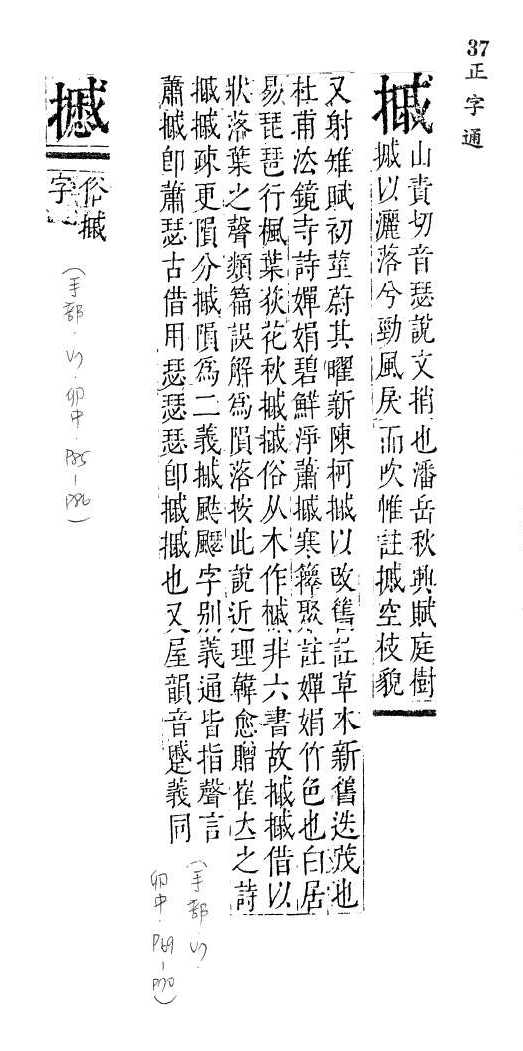 37正字通
摵
山責切音瑟說文捎也潘岳秋興賦庭樹
摵以灑落兮勁風戾而吹帷註摵空枝貌
又射雉賦初莖蔚其曜新陳柯摵以改舊註草木新舊迭茂也
杜甫法鏡寺詩嬋娟碧鮮淨蕭摵寒籜聚註嬋娟竹色也白居
易琵琶行楓葉荻花秋摵摵俗从木作槭非六書故摵摵借以
狀落葉之聲類篇誤解為隕落按此說近理韓愈贈崔立之詩
摵摵疎更隕分摵隕為二義摵颭飋字別義通皆指聲言
蕭摵卽蕭瑟古借用瑟瑟瑟卽摵摵也又屋韻音蹙義同
(手部.V7.
卯中.P69-P70)
𢵧
俗摵
字
(手部.V7.卯中.P85-P86)